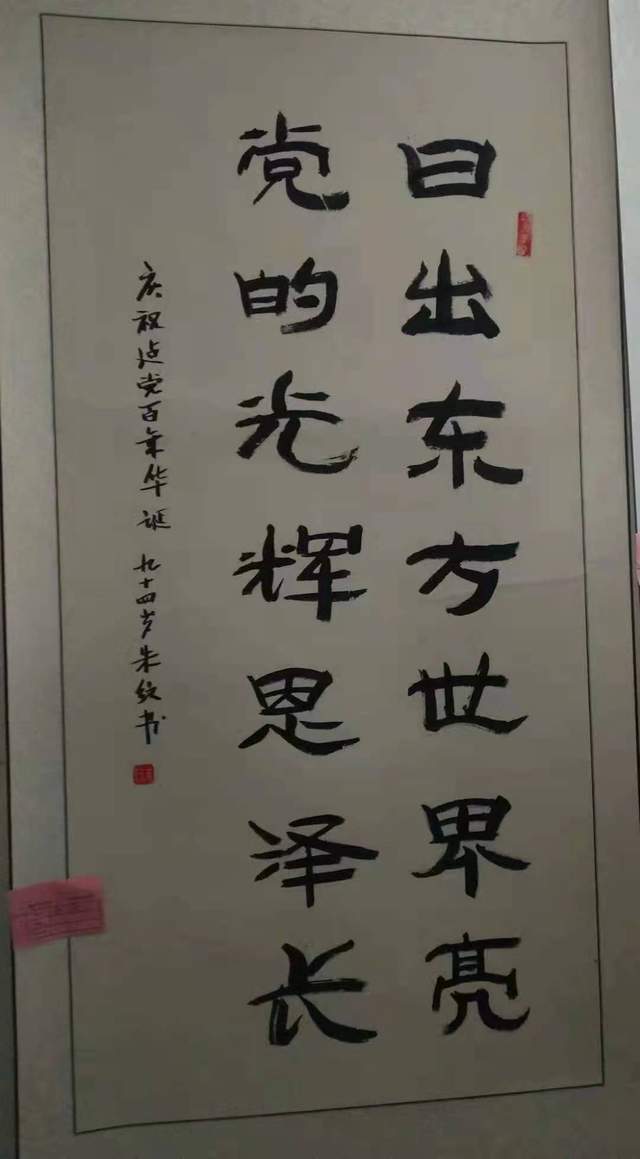 日出东方世界亮
党的光辉恩泽长
庆祝建党百年华诞 九十四岁朱纹书